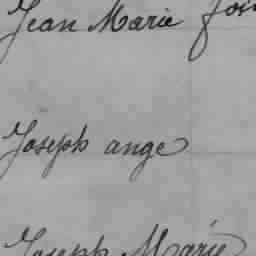 Jean Marie
Joseph ange
Joseph Marie